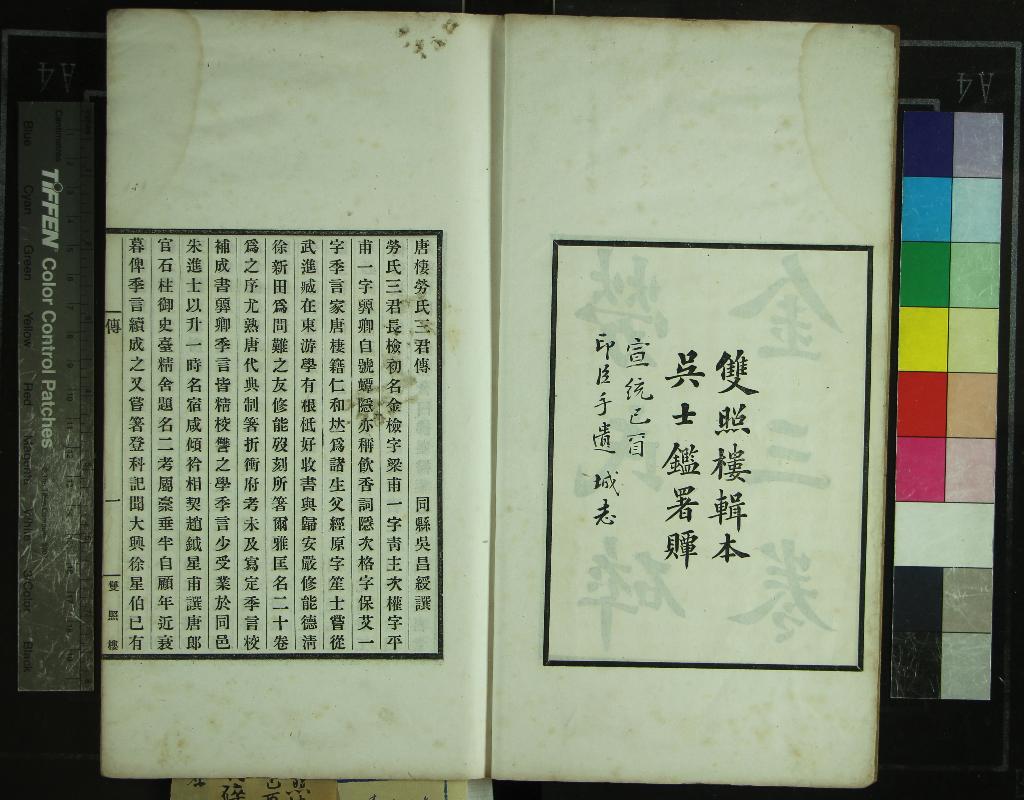 雙照樓輯本
吳士鑑署䵣
宣統己酉
印臣手遺 城志
唐棲勞氏三君傳 同縣吳昌綬譔
勞氏三君長檢初名金檢字梁甫一字靑主次權字平
甫一字巽卿自號蟫隱亦稱飮香詞隱次格字保艾一
字季言家唐棲籍仁和竝爲諸生父經原字笙士嘗從
武進臧在東游學有根柢好收書與歸安嚴修能德淸
徐新田爲問難之友修能歿刻所箸爾雅匡名二十卷
爲之序尤熟唐代典制箸折衝府考未及寫定季言校
補成書巽卿季言皆精校讐之學季言少受業於同邑
朱進士以升一時名宿咸傾衿相契趙鉞星甫譔唐郞
官石柱御史臺精舍題名二考屬稾垂半自顧年近衰
暮俾季言續成之又嘗箸登科記聞大興徐星伯已有
傳
一
雙照樓
TIFFEN Color Control Patches
Centimetres
Blue
Cyan
Green
Yellow
Red
Magenta
White
3/Color
Black
A4
A4